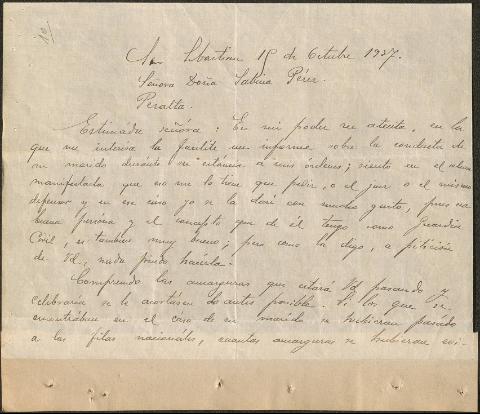 10
San Sebastian 15 de Octubre 1937.
Señora Doña Sabina Pérez.
Peralta.
Estimada señora: En mi poder su atenta, en la
que me interesa la facilite un informe sobre la conducta de
su marido durante su estancia a mis órdenes; siento en el alma
manifestarla que eso me lo tiene que pedir, o el juez o el mismo
defensor y en ese caso yo se lo daré con mucho gusto, pues es
buena persona y el concepto que de él tengo como Guardia
Civil, es tambien muy bueno; pero como la digo, a petición
de Vd., nada puedo hacerla.
Comprendo las amarguras que estará Vd pasando y
celebraria se le acortasen cuantos antes posible. Si los que se
encontraban en el caso de su marido se hubieran pasado
a las filas nacionales, cuantas amarguras se hubieran evi-